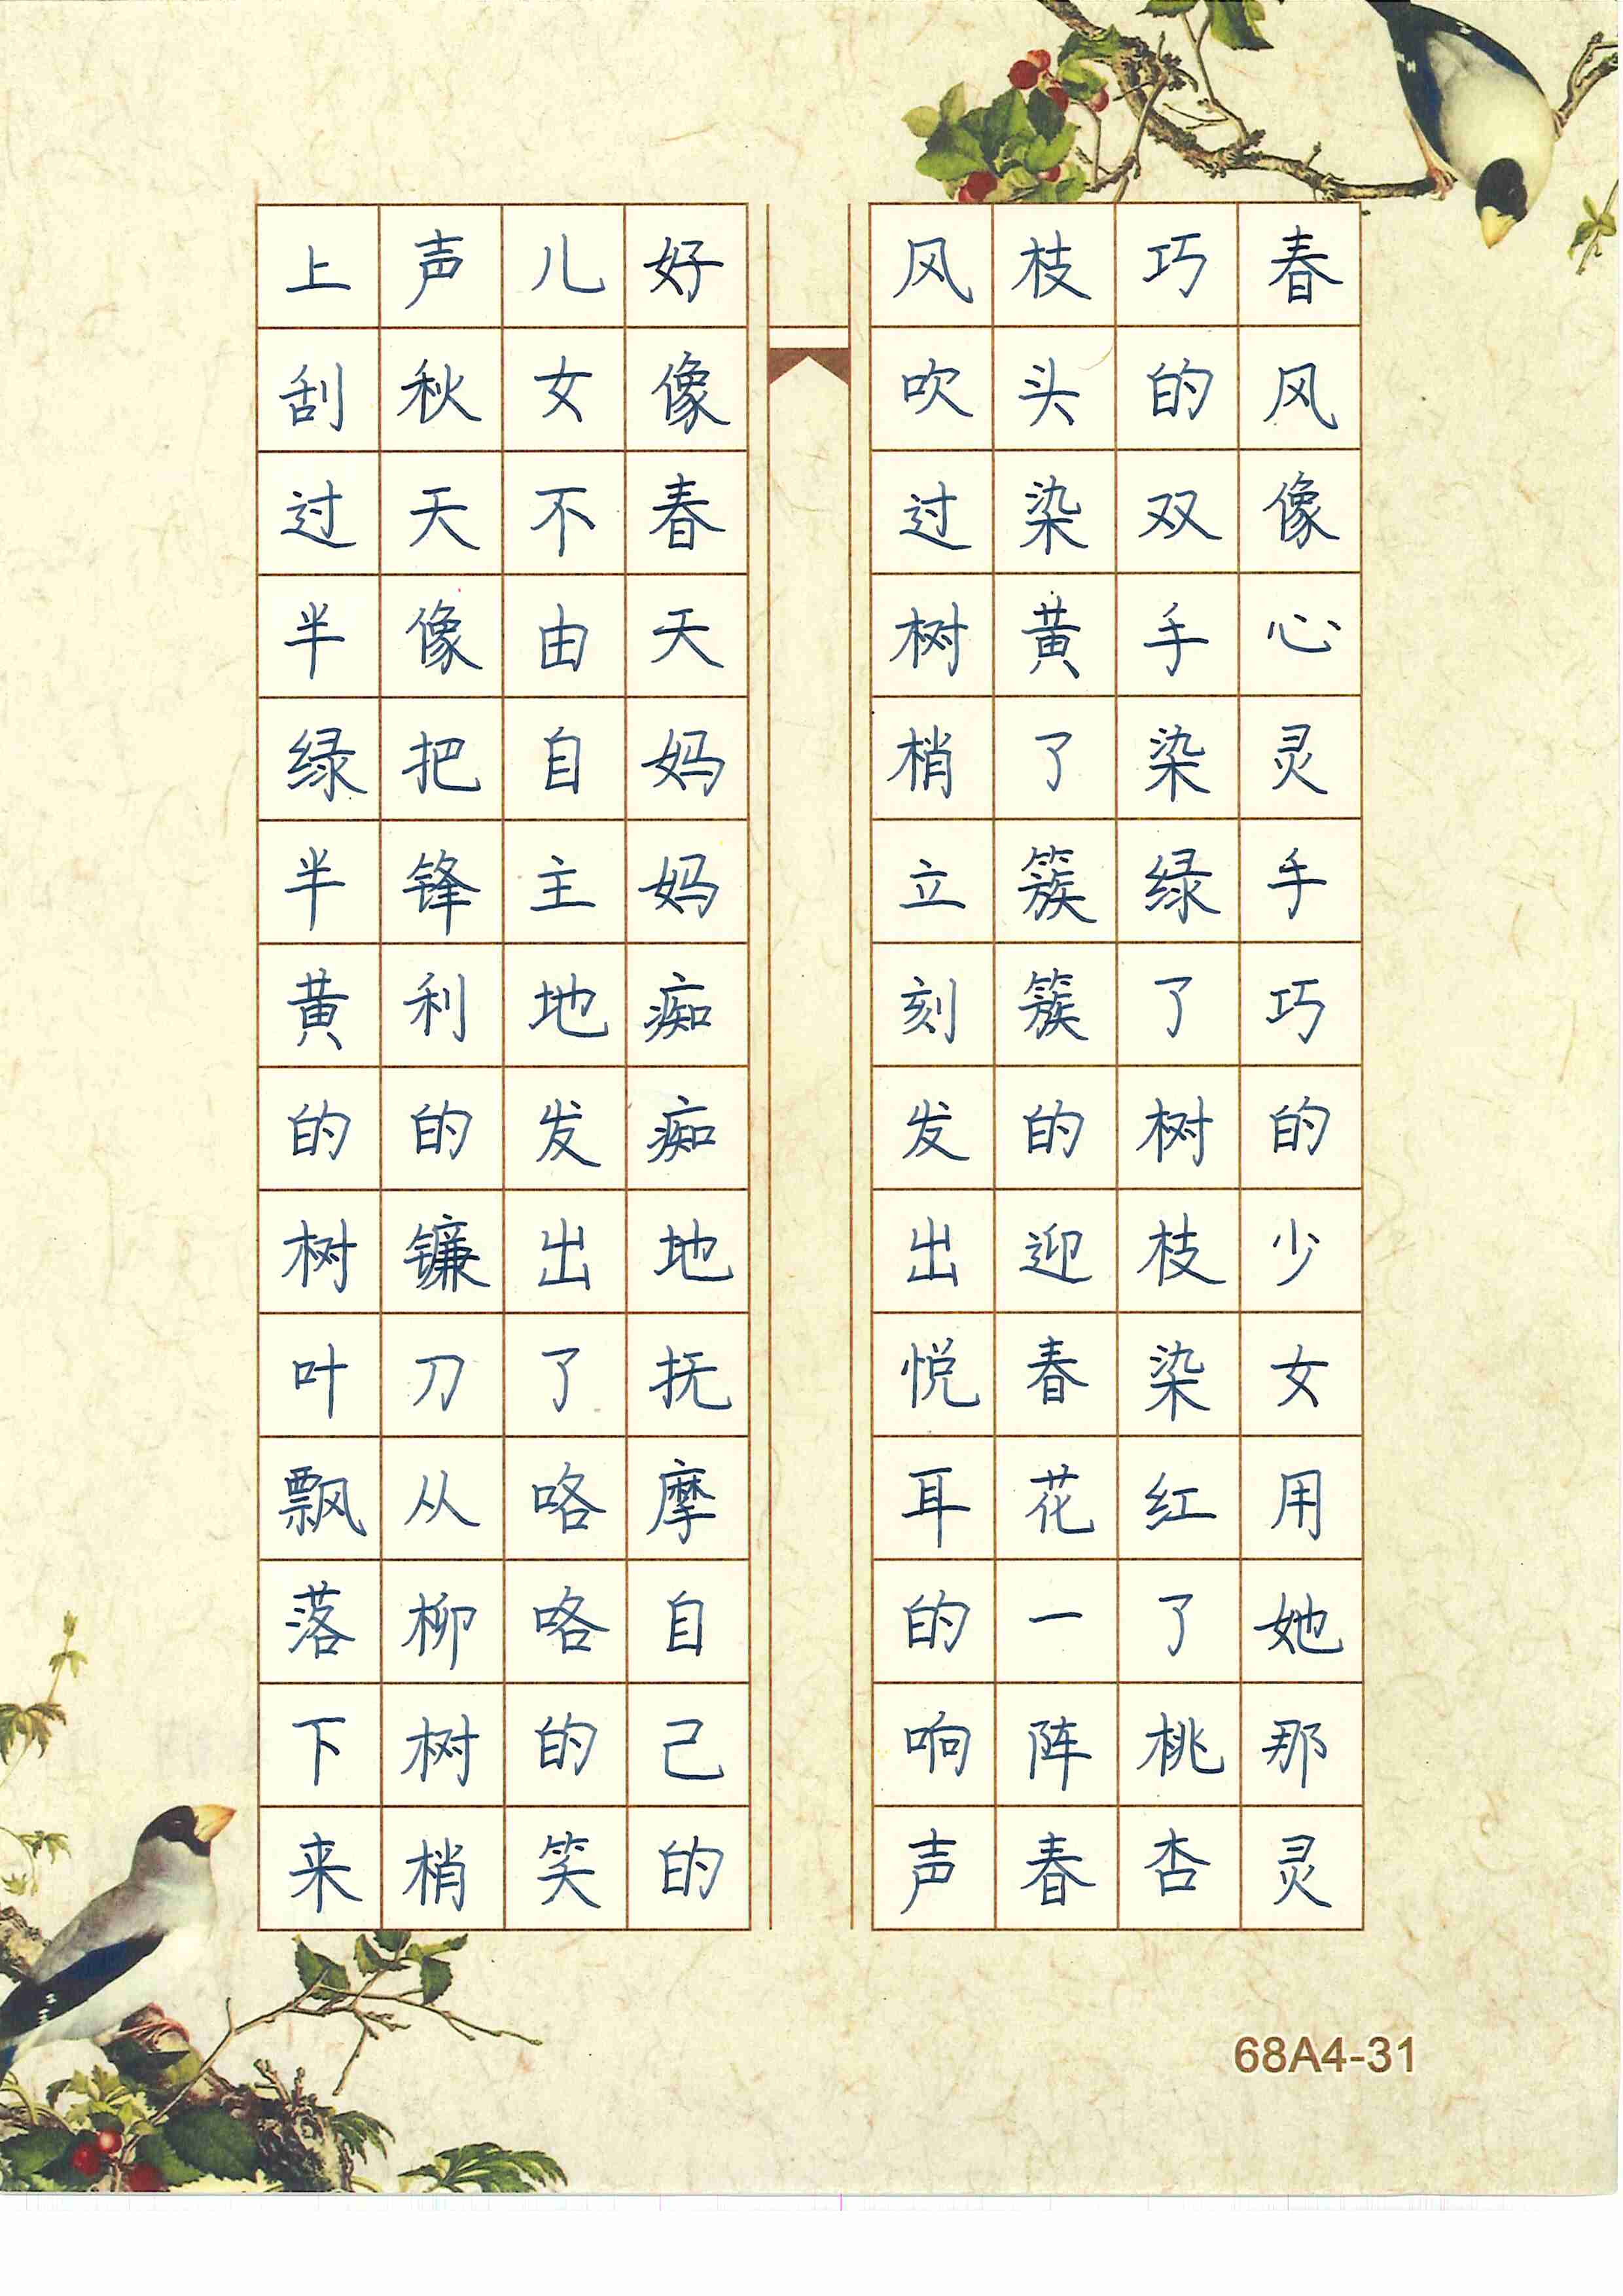 春风像心灵手巧的少女用她那灵
巧的双手染绿了树枝染红了桃杏
枝头染黄了簇簇的迎春花一阵春
风吹过树梢立刻发出悦耳的响声
好像春天妈妈痴痴地抚摩自己的
儿女不由自主地发出了咯咯的笑
声秋天像把锋利的镰刀从柳树梢
上刮过半绿半黄的树叶飘落下来
68A4-31